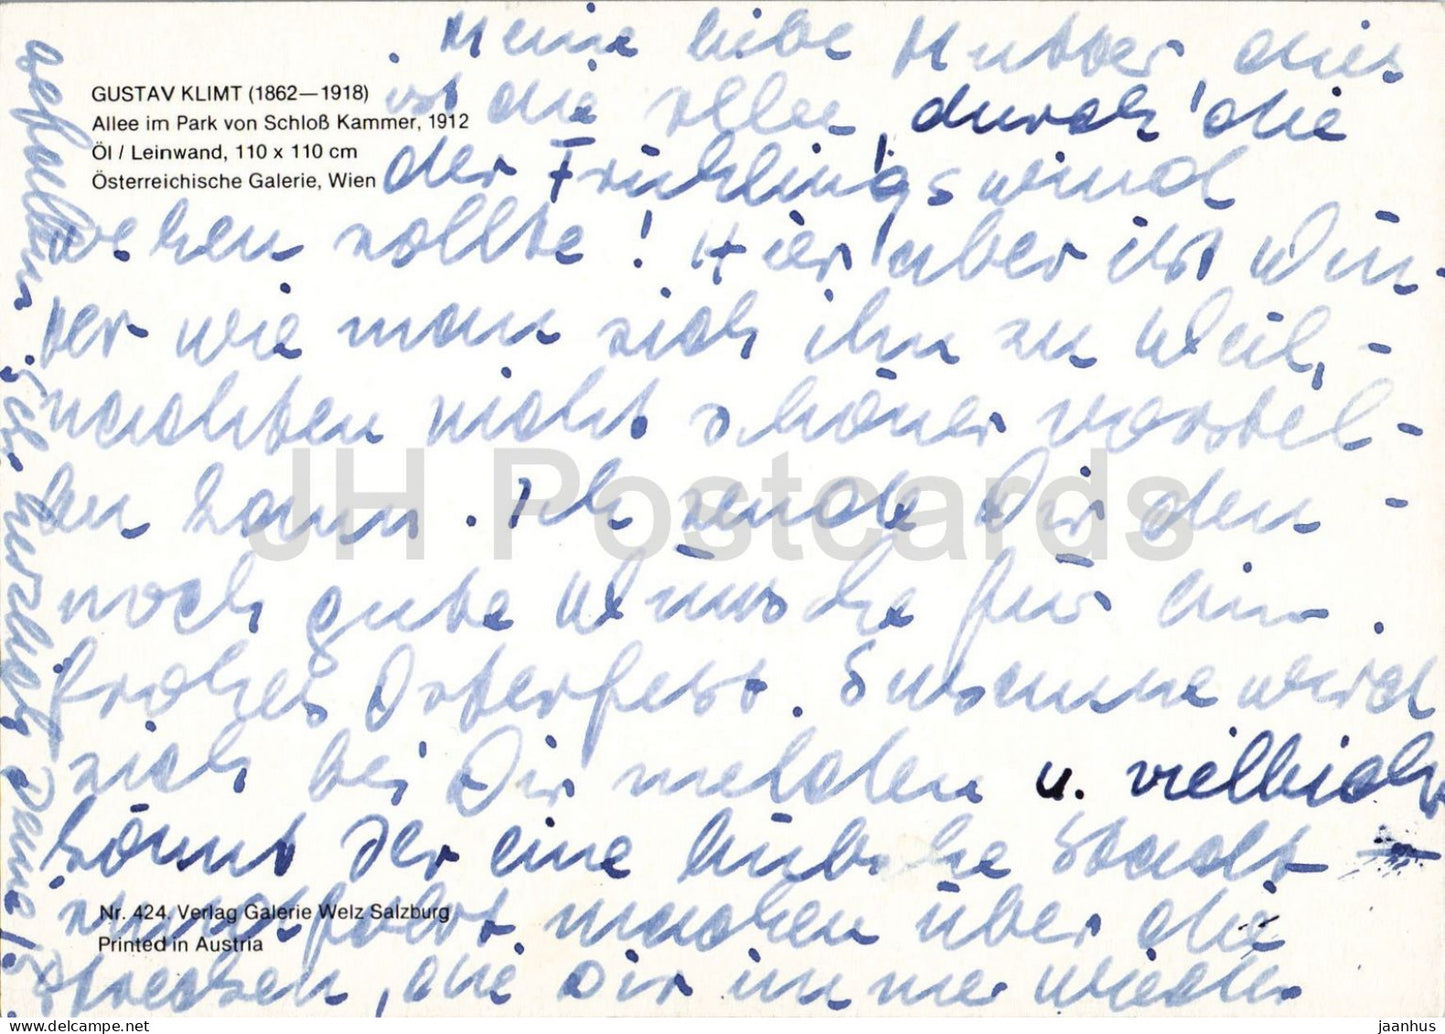 GUSTAV KLIMT (1862—1918)
Allee im Park von Schloß Kammer, 1912
Öl / Leinwand, 110 x 110 cm
Österreichische Galerie, Wien
Meine liebe Mutter, dies
ist die Allee, durch die
der Frühlingswind
wehen sollte! Hier aber ist Win-
ter wie man sich ihn zu Weih-
nachten nicht schöner vorstel-
len kann. Ich sende Dir den-
noch gute Wünsche für ein
frohes Osterfest. Susanne wird
sich bei Dir melden u. vielleicht
könnt Ihr eine hübsche Stadt-
rundfahrt machen über die
Strecken, die Dir immer wieder
gefallen. Sei herzlich Deine
Nr. 424. Verlag Galerie Welz Salzburg
Printed in Austria
JH Postcards
www.delcampe.net
jaanhus